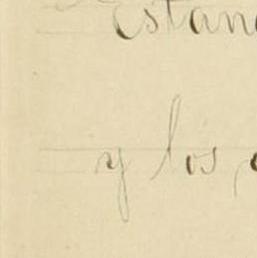 Estan
y los